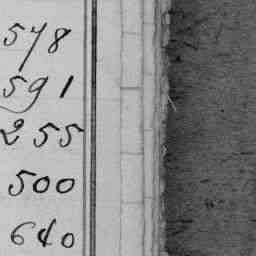 578
591
255
500
640